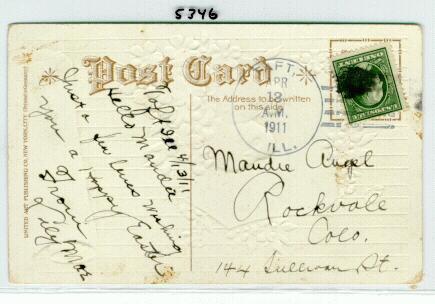 5346
Post Card
The Address to be written
on this side.
TAFT,
APR
13
A.M.
1911
ILL.
Taft Ill 4/3/11
Hello Mandie
Just a few lines wishing
you a Happy Easter
From
Lily Mae
Mandie Angel
Rockvale
Colo.
144 Sullivan St.
UNITED ART PUBLISHING CO. NEW YORK CITY.